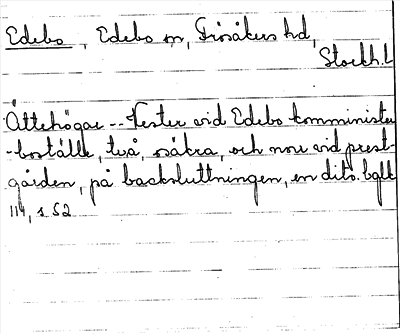 Edebo, Edebo sn, Frösåkers hd,
Stockh.L
Ättehögar -- Vester vid Edebo komminister
-boställe, två, osäkra, och norr vid prest-
gården, på backsluttningen, en dito. bglk
114, s 52